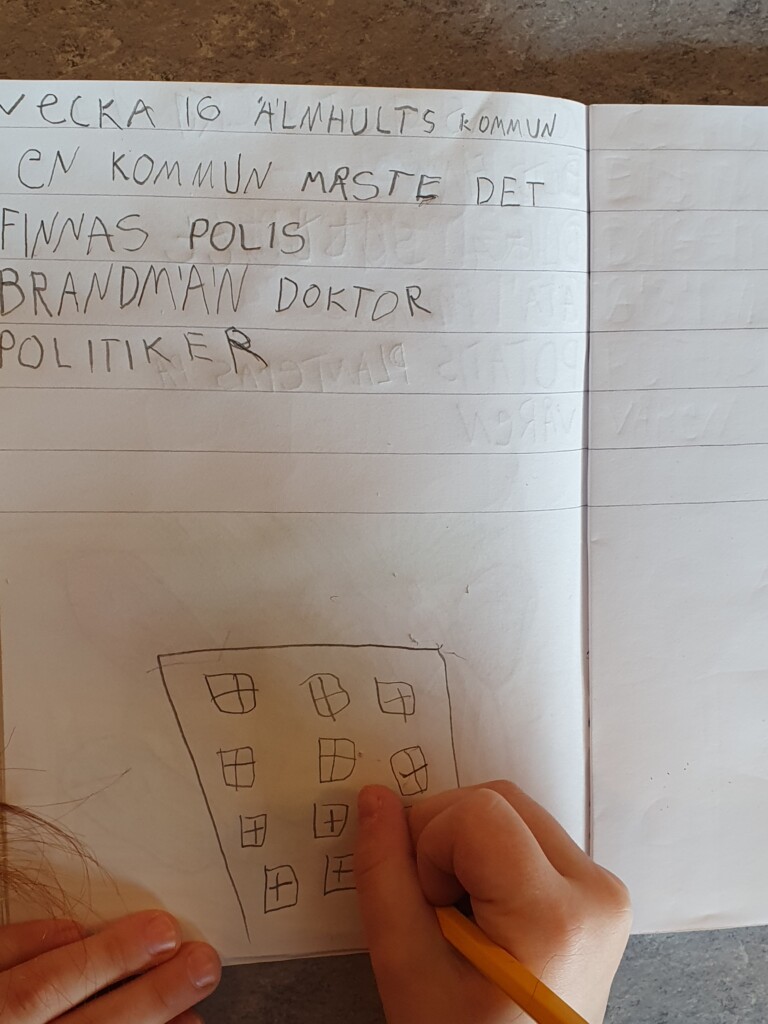 VECKA 16 ÄLMHULTS KOMMUN
EN KOMMUN MÅSTE DET
FINNAS POLIS
BRANDMÄN DOKTOR
POLITIKER